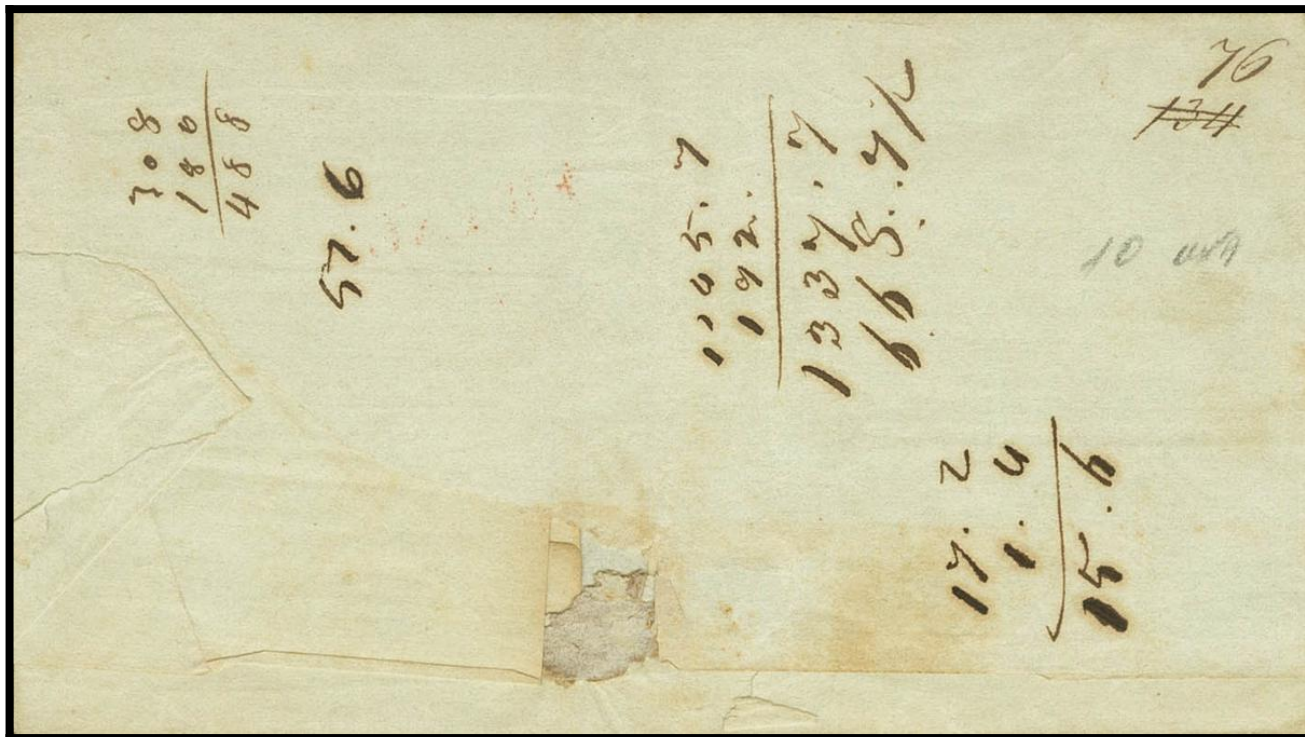 76
134
308
180
488
57.6
1145.7
192.
1337.7
668.7½
17.2
1.4
15.6